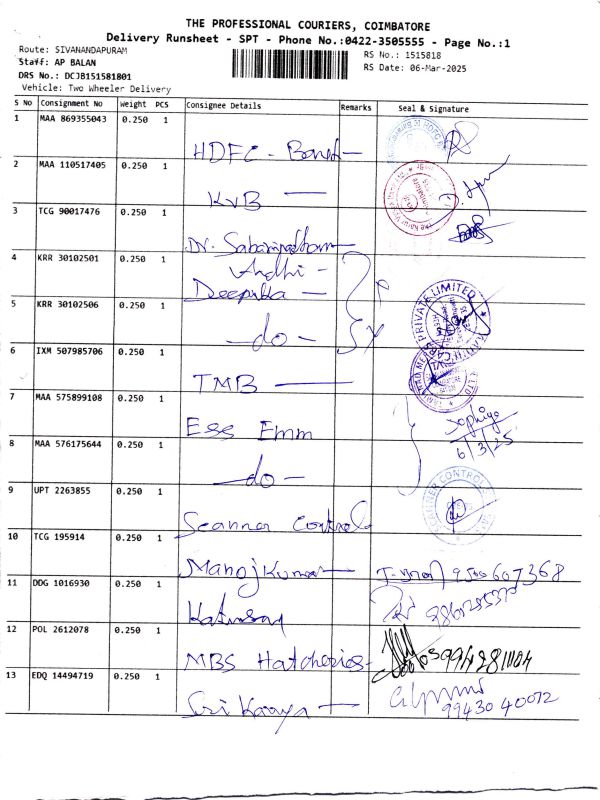 THE PROFESSIONAL COURIERS, COIMBATORE
Delivery Runsheet - SPT - Phone No.:0422-3505555 - Page No.:1
Route: SIVANANDAPURAM
RS No.: 1515818
Staff: AP BALAN
RS Date: 06-Mar-2025
DRS No.: DCJB151581801
Vehicle: Two Wheeler Delivery
S No Consignment No Weight PCS Consignee Details Remarks Seal & Signature
1 MAA 869355043 0.250 1
HDFC - Bank -
2 MAA 110517405 0.250 1
KVB —
3 TCG 90017476 0.250 1
Dr.
4 KRR 30102501 0.250 1
Deepikka —
5 KRR 30102506 0.250 1
—do—
6 IXM 507985706 0.250 1
TMB —
7 MAA 575899108 0.250 1
Ess Emm
Sophiya
6/3/25
8 MAA 576175644 0.250 1
—do—
9 UPT 2263855 0.250 1
Scanner Controls
SCANNER CONTROLS
10 TCG 195914 0.250 1
Manoj Kumar — 9500607368
11 DDG 1016930 0.250 1
12 POL 2612078 0.250 1
MBS Hatcheries - 9994281004
13 EDQ 14494719 0.250 1
Sri Kaavya —
99430 40072